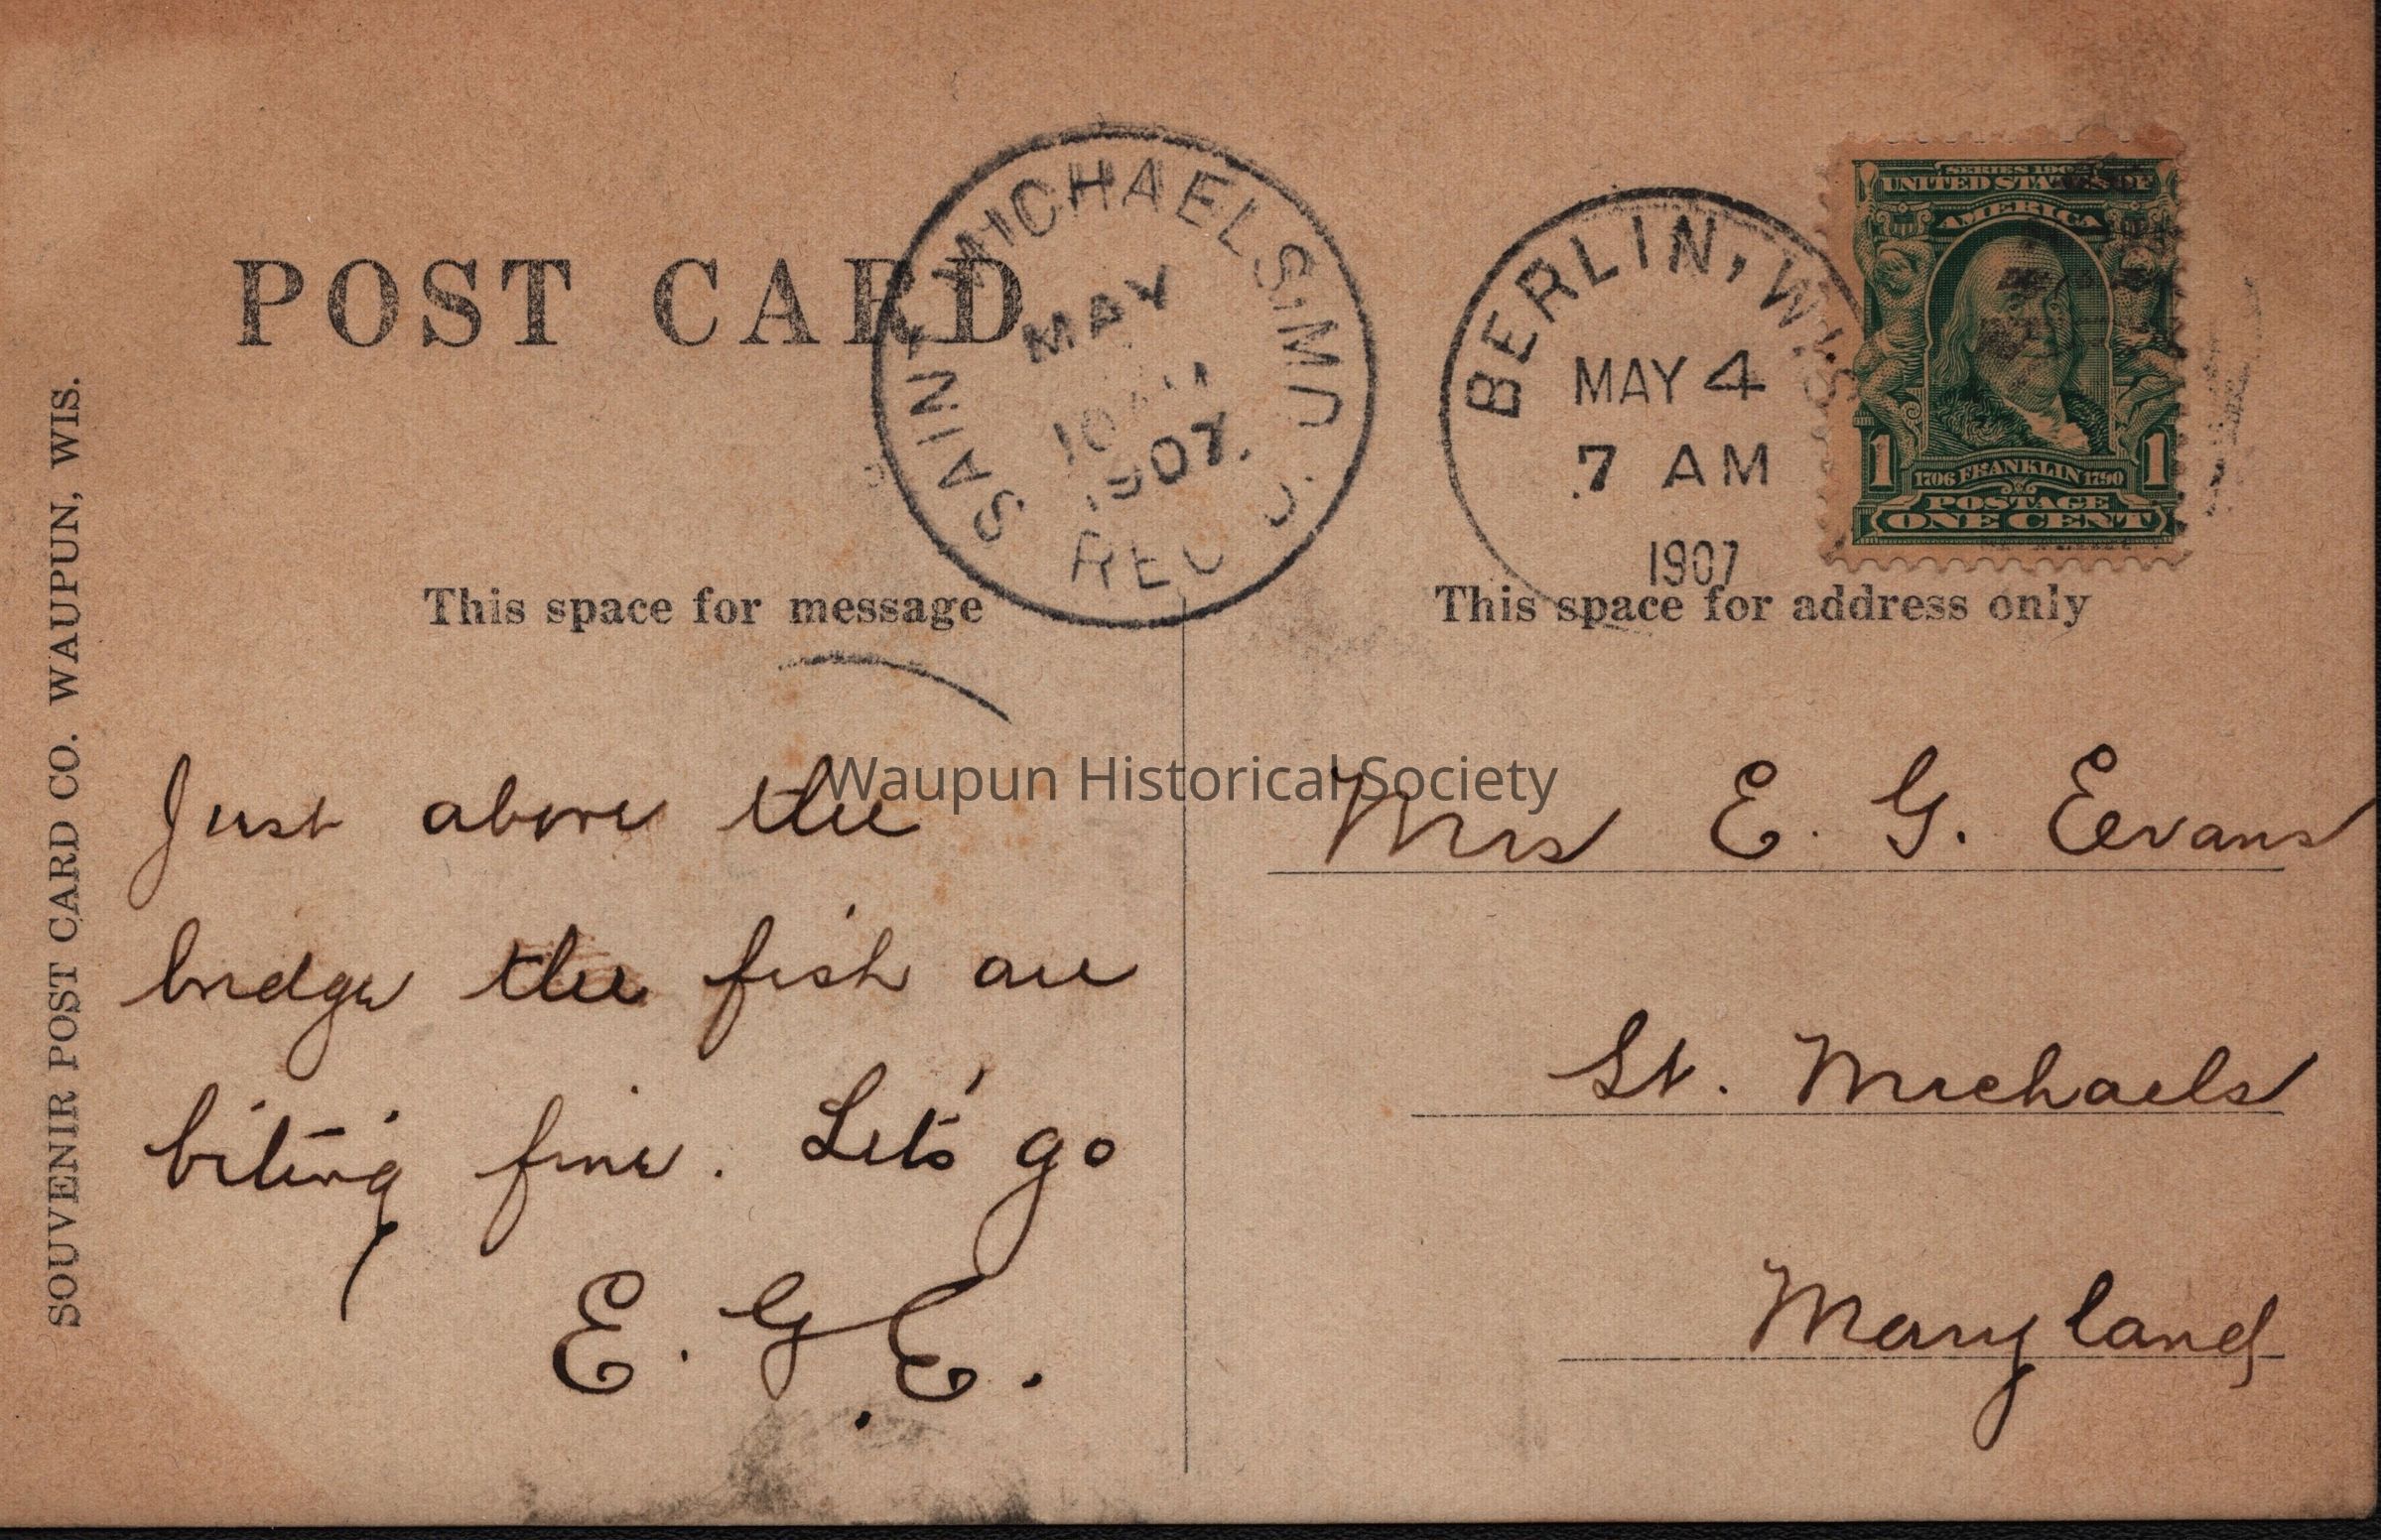 POST CARD
SAINT MICHAELS, MD.
MAY
1907
REC'D.
BERLIN, WIS
MAY 4
7 AM
1907
SERIES 1902
UNITED STATES OF
AMERICA
1706 FRANKLIN 1790
1 1
POSTAGE
ONE CENT
This space for message
This space for address only
SOUVENIR POST CARD CO. WAUPUN, WIS.
Waupun Historical Society
Just above the
bridge the fish are
biting fine. Let's go
E. G. E.
Mrs E. G. Evans
St. Michaels
Maryland